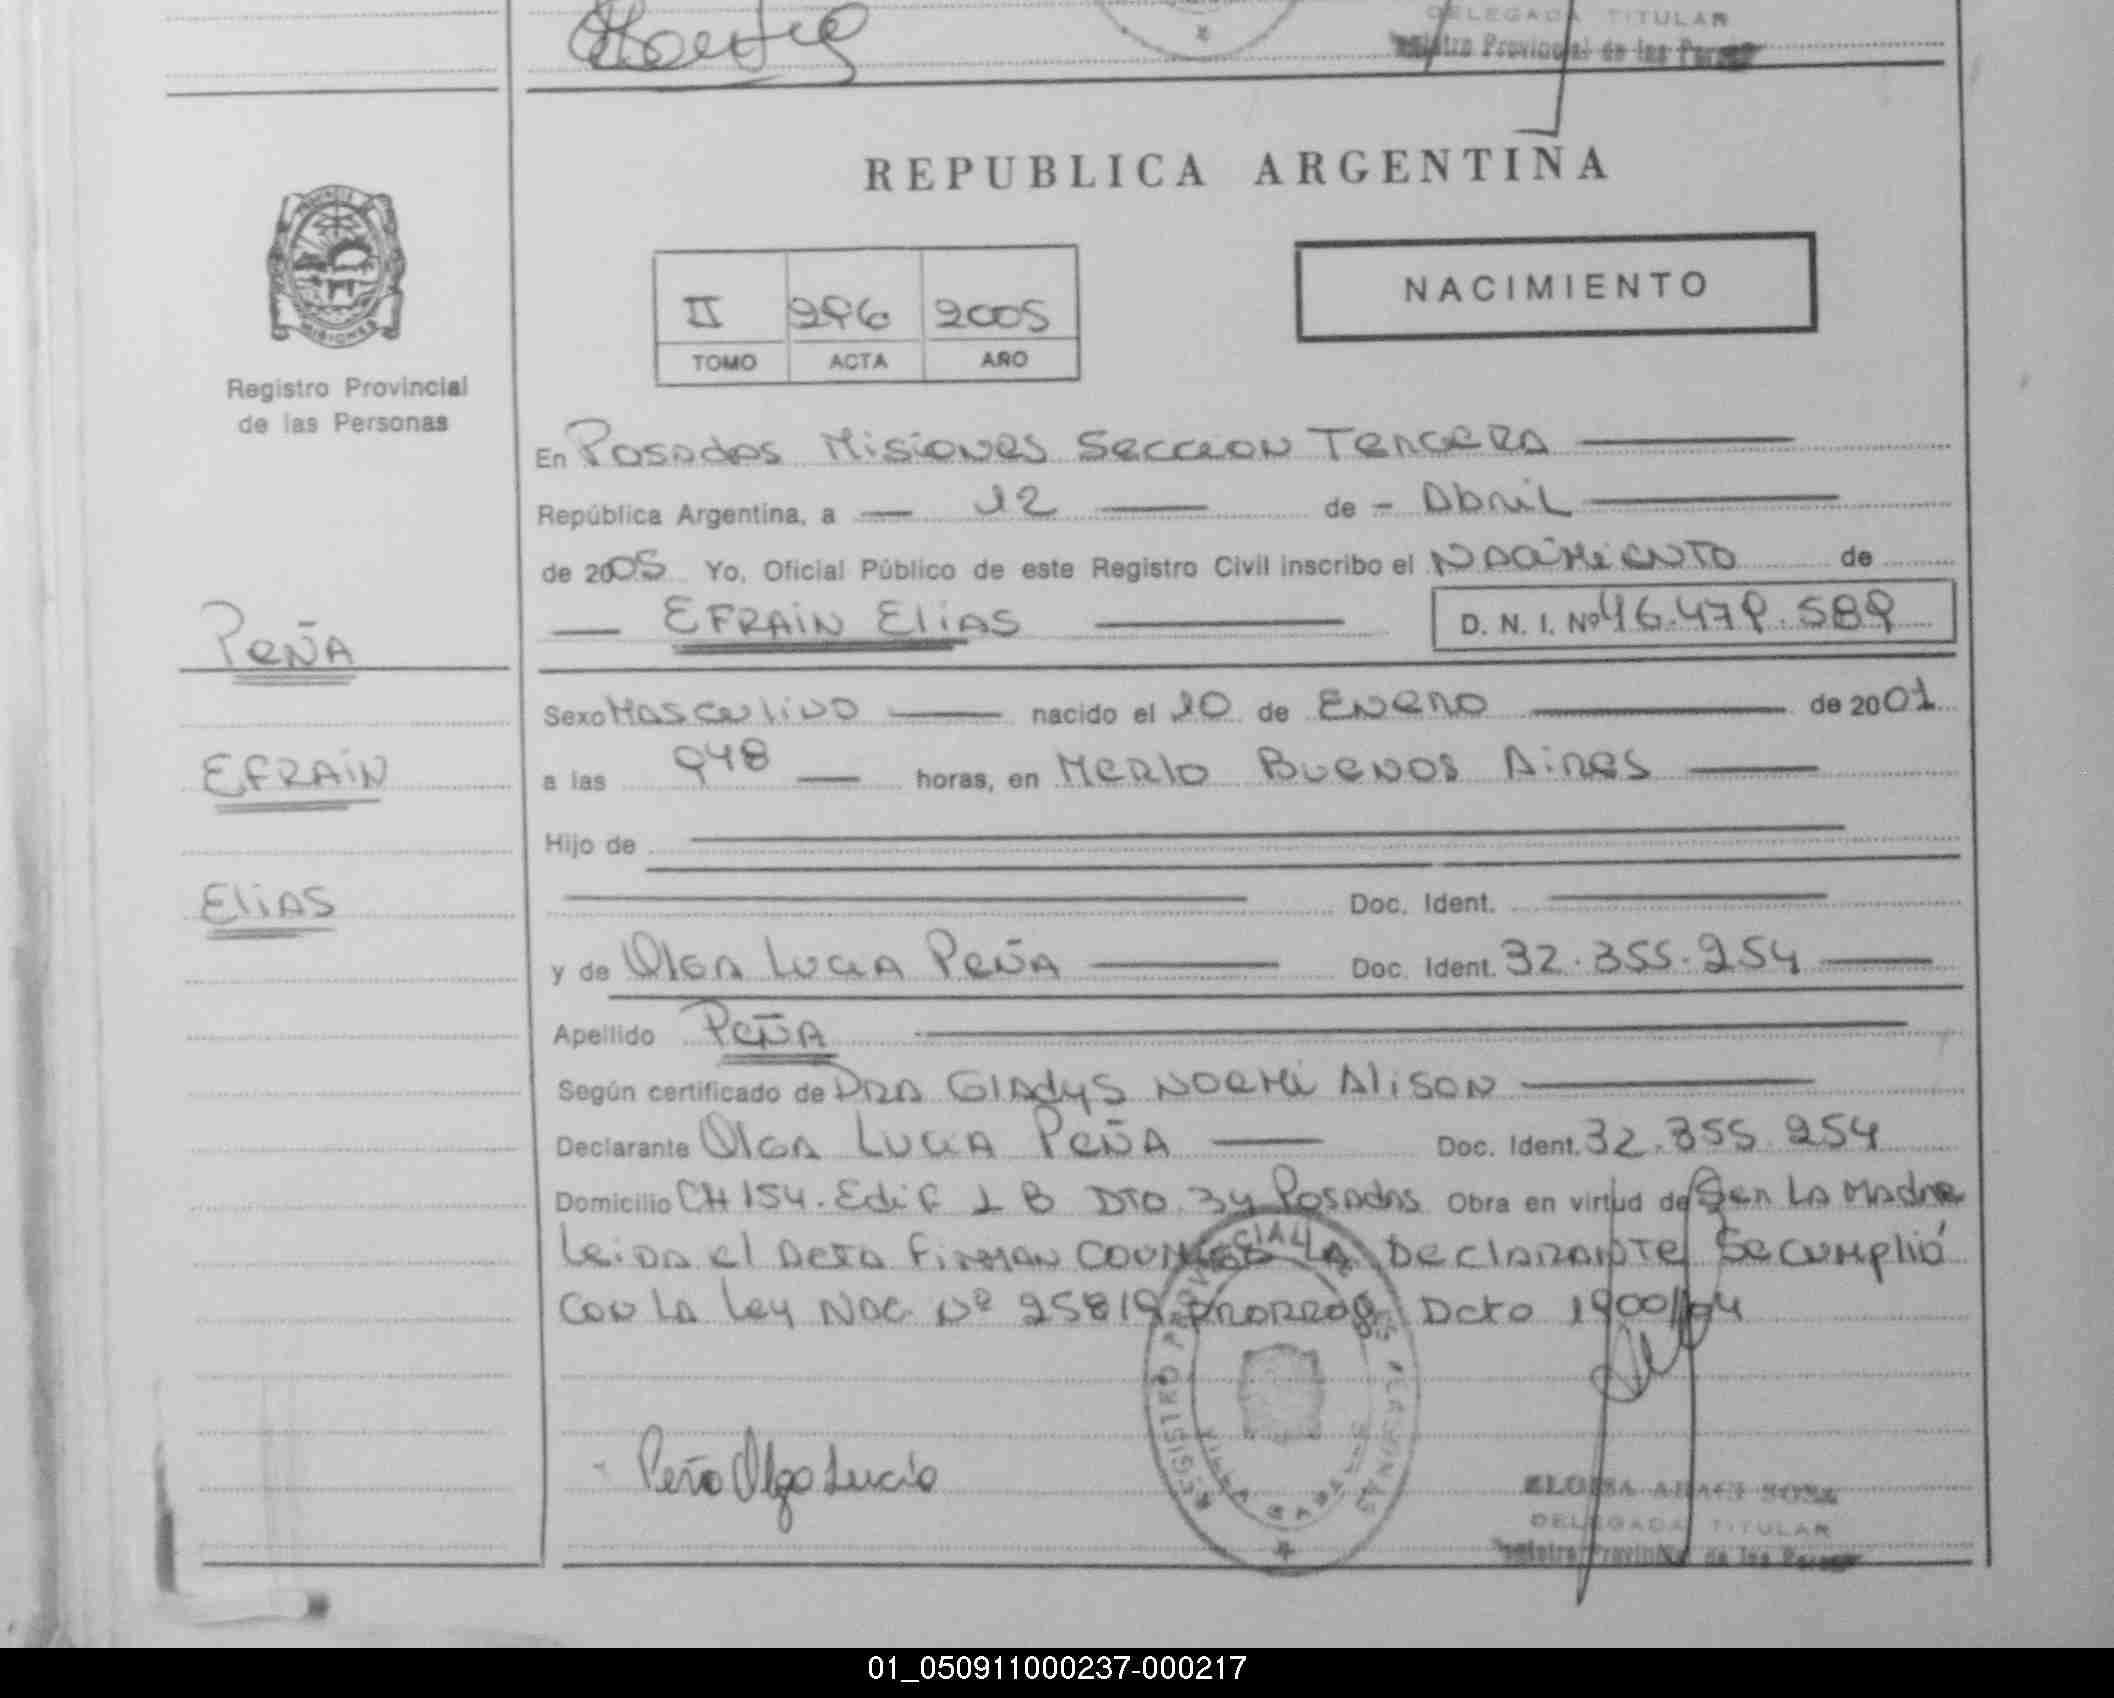 DELEGADA TITULAR
Registro Provincial de las Personas
REPUBLICA ARGENTINA
PROVINCIA
MISIONES
Registro Provincial
de las Personas
II 296 2005
TOMO ACTA AÑO
NACIMIENTO
En Posadas Misiones Seccion Tercera
República Argentina, a 12 de Abril
de 2005 Yo, Oficial Público de este Registro Civil inscribo el Nacimiento de
EFRAIN ELIAS D. N. I. Nº 46.479.589
PEÑA
EFRAIN
ELIAS
Sexo Masculino nacido el 20 de Enero de 2001
a las 948 horas, en Merlo Buenos Aires
Hijo de
Doc. Ident.
y de Olga Lucia Peña Doc. Ident. 32.355.254
Apellido PEÑA
Según certificado de Dra Gladys Noemi Alison
Declarante Olga Lucia Peña Doc. Ident. 32.355.254
Domicilio CH 154. Edif 1 B Dto 34 Posadas Obra en virtud de Ser la madre
Leida el Acta firman conmigo la Declarante Se cumplió
con la Ley Nac. Nº 25819 prorrog Dcto 1900/04
Peña Olga Lucia
REGISTRO PROVINCIAL DE LAS PERSONAS
VILLA CABELLO
DELEGADA TITULAR
Registro Provincial de las Personas
01_050911000237-000217